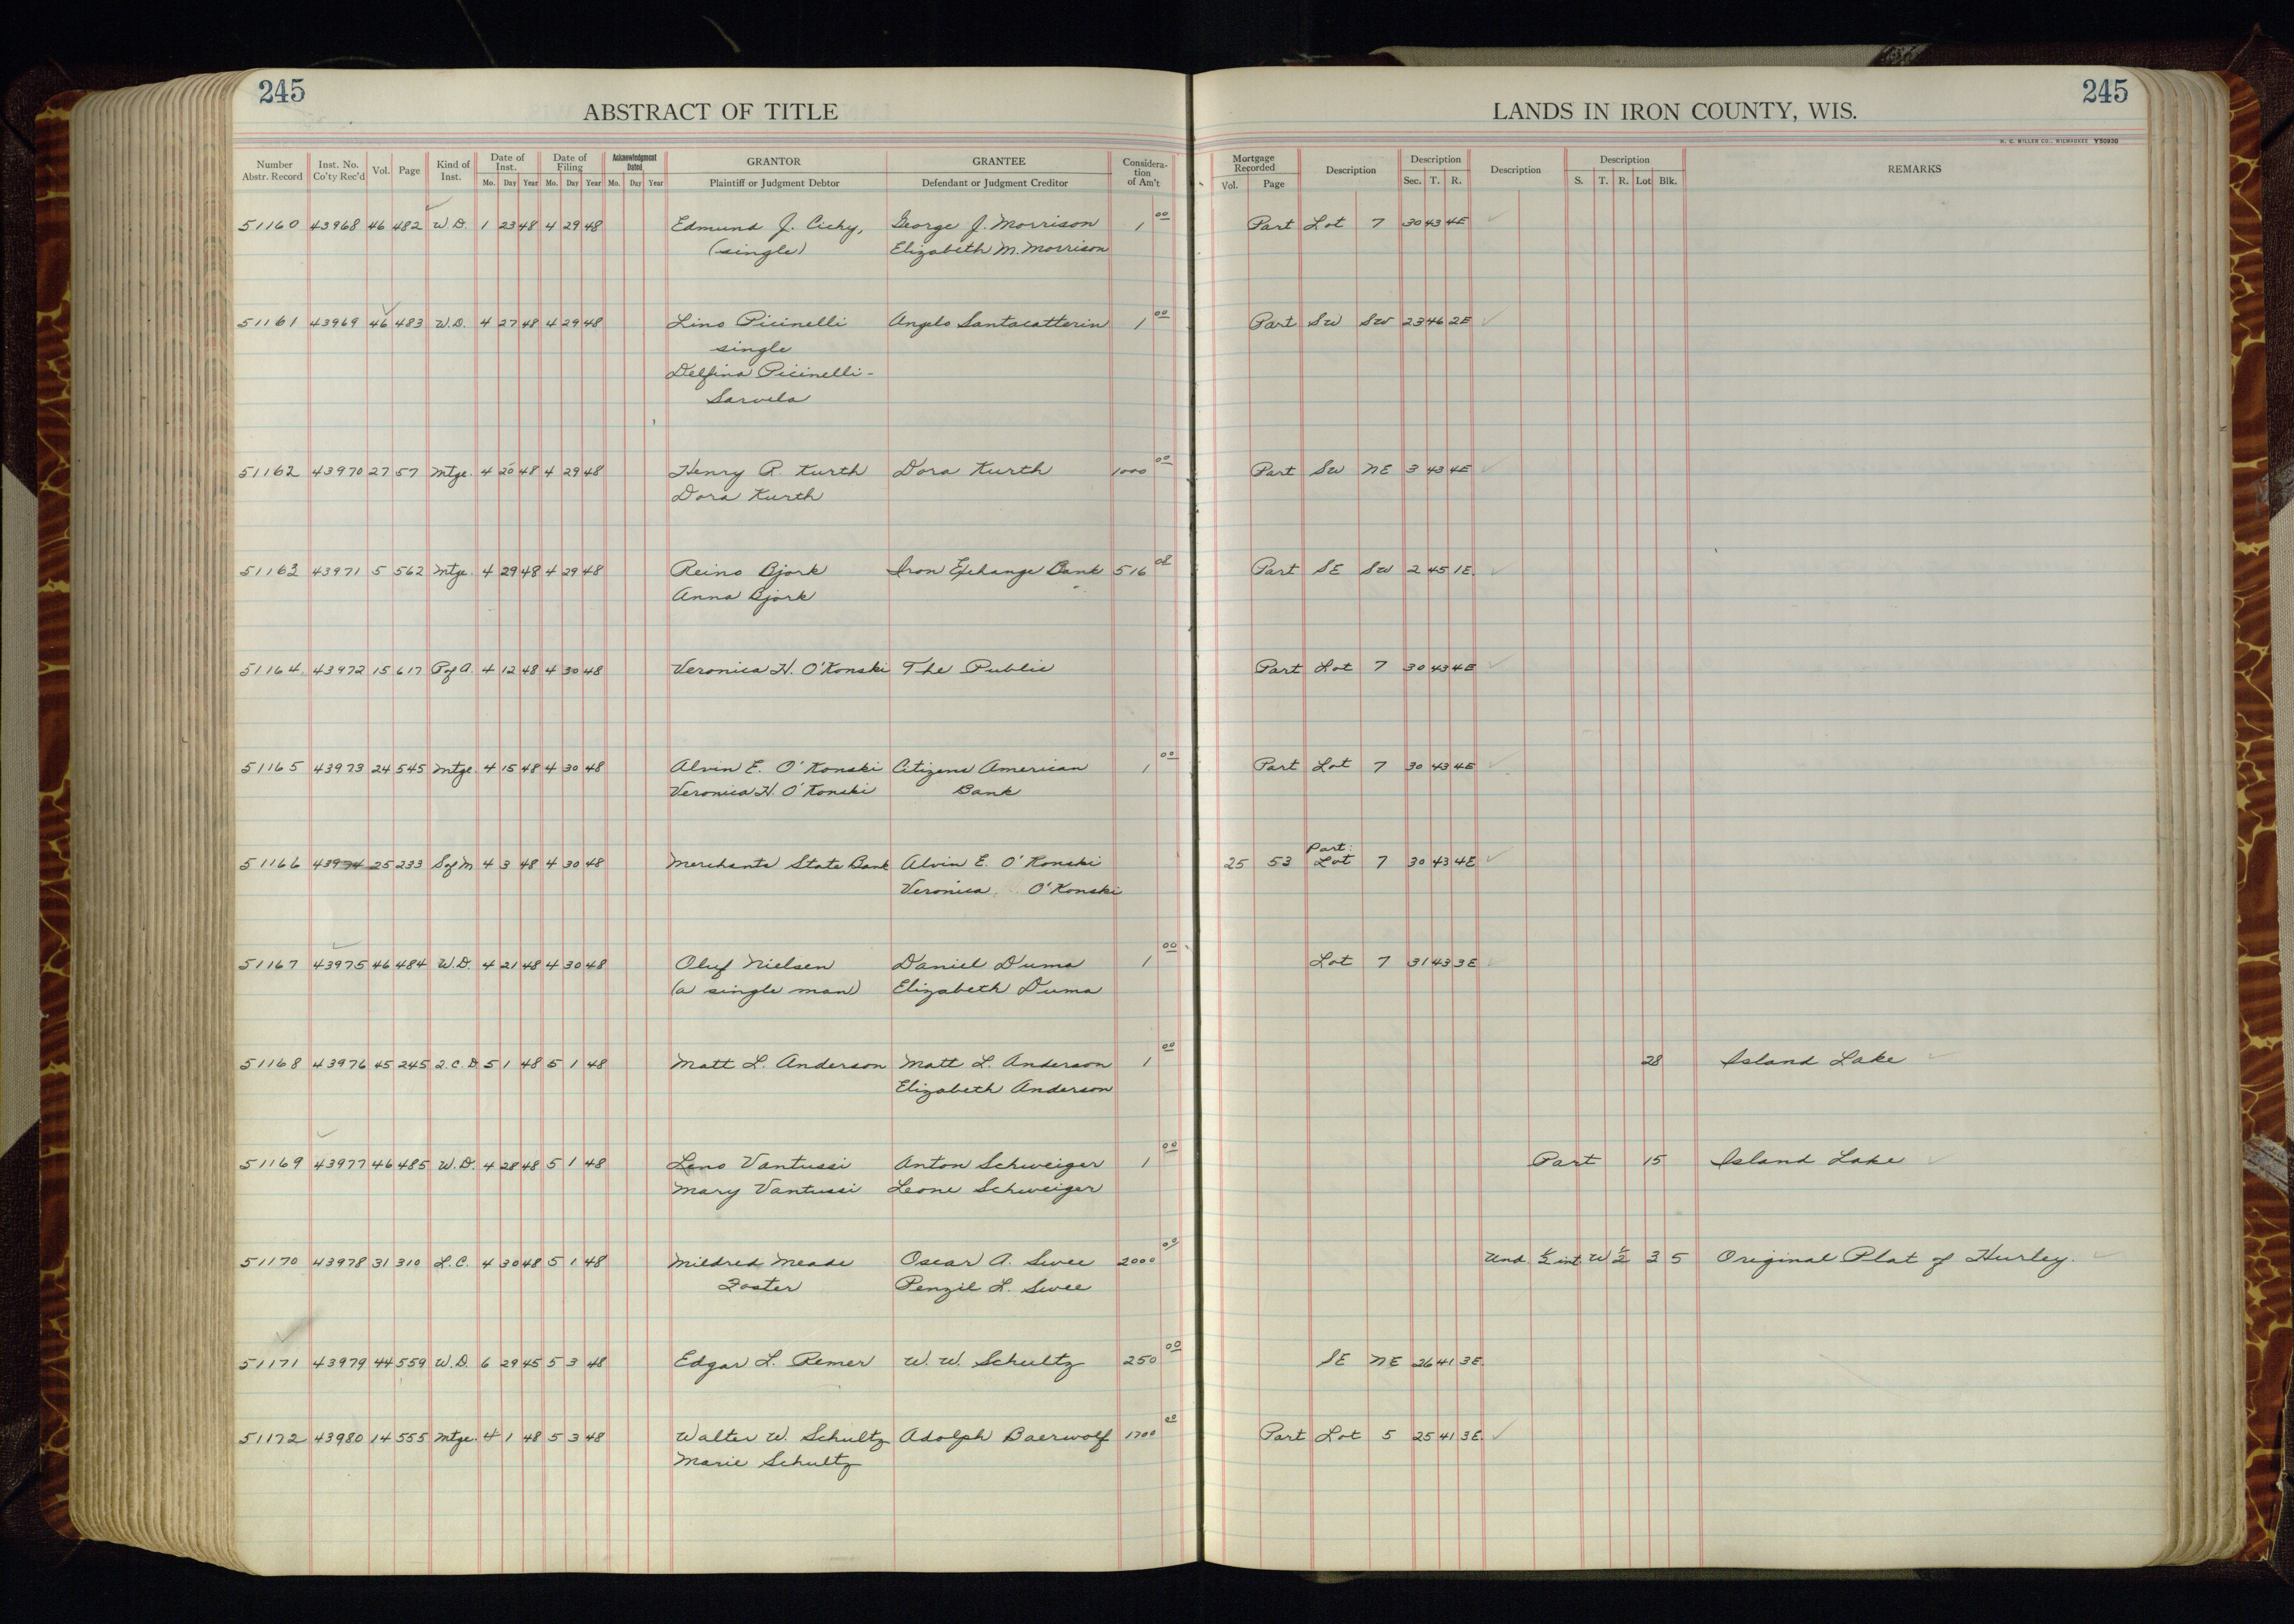 245
245
ABSTRACT OF TITLE
LANDS IN IRON COUNTY, WIS.
H. C. MILLER CO., MILWAUKEE Y50930
Number Abstr. Record Inst. No. Co'ty Rec'd Vol. Page Kind of Inst. Date of Inst. Mo. Day Year Date of Filing Mo. Day Year Acknowledgment Dated Mo. Day Year GRANTOR Plaintiff or Judgment Debtor GRANTEE Defendant or Judgment Creditor Considera-tion of Am't Mortgage Recorded Vol. Page Description Description Sec. T. R. Description Description S. T. R. Lot Blk. REMARKS
51160 43968 46 482 W.D. 1 23 48 4 29 48 Edmund J. Cichy, George J. Morrison 1 00 Part Lot 7 30 43 4E
(single) Elizabeth M. Morrison
51161 43969 46 483 W.D. 4 27 48 4 29 48 Lino Picinelli Angelo Santacatterin 1 00 Part SW SW 23 46 2E
single
Delfina Picinelli-
Sarvela
51162 43970 27 57 Mtge. 4 20 48 4 29 48 Henry R. Kurth Dora Kurth 1000 00 Part SW NE 3 43 4E
Dora Kurth
51163 43971 5 562 Mtge. 4 29 48 4 29 48 Reino Bjork Iron Exchange Bank 516 08 Part SE SW 2 45 1E.
Anna Bjork
51164 43972 15 617 P of A. 4 12 48 4 30 48 Veronica H. O'Konski The Public Part Lot 7 30 43 4E
51165 43973 24 545 Mtge. 4 15 48 4 30 48 Alvin E. O'Konski Citizens American 1 00 Part Lot 7 30 43 4E
Veronica H. O'Konski Bank
Part
51166 43974 25 233 S of M 4 3 48 4 30 48 Merchants State Bank Alvin E. O'Konski 25 53 Lot 7 30 43 4E
Veronica O'Konski
51167 43975 46 484 W.D. 4 21 48 4 30 48 Oluf Nielsen Daniel Duma 1 00 Lot 7 31 43 3E
(a single man) Elizabeth Duma
51168 43976 45 245 Q.C.D 5 1 48 5 1 48 Matt L. Anderson Matt L. Anderson 1 00 28 Island Lake
Elizabeth Anderson
51169 43977 46 485 W.D. 4 28 48 5 1 48 Leno Vantussi Anton Schweiger 1 00 Part 15 Island Lake
Mary Vantussi Leone Schweiger
51170 43978 31 310 L.C. 4 30 48 5 1 48 Mildred Meade Oscar A. Swee 2000 00 Und. 1/2 int W 1/2 3 5 Original Plat of Hurley.
Foster Penzil L. Swee
51171 43979 44 559 W.D. 6 29 45 5 3 48 Edgar L. Remer W. W. Schultz 250 00 SE NE 26 41 3E.
51172 43980 14 555 Mtge. 4 1 48 5 3 48 Walter W. Schultz Adolph Baerwolf 1700 00 Part Lot 5 25 41 3E.
Marie Schultz